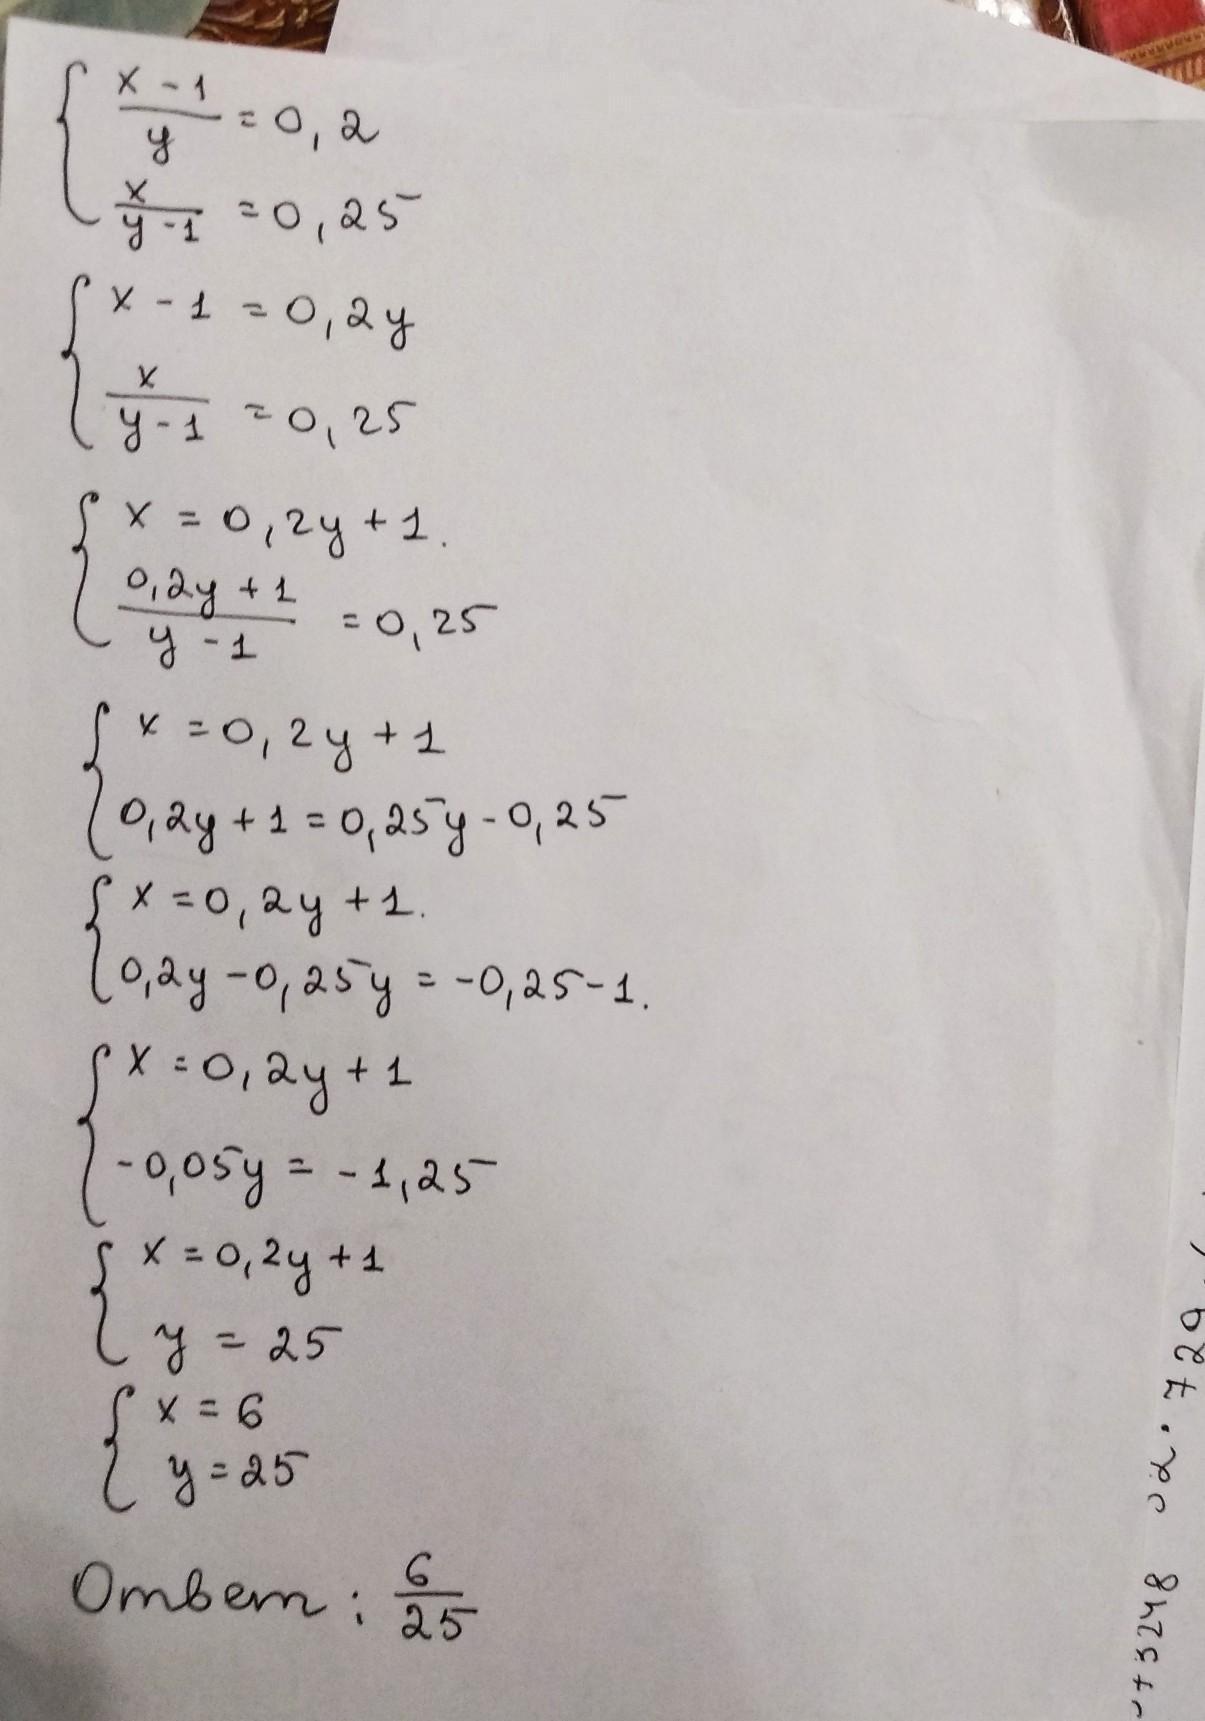 { (x - 1)/y = 0,2
x/(y - 1) = 0,25
{ x - 1 = 0,2y
x/(y - 1) = 0,25
{ x = 0,2y + 1.
(0,2y + 1)/(y - 1) = 0,25
{ x = 0,2y + 1
0,2y + 1 = 0,25y - 0,25
{ x = 0,2y + 1.
0,2y - 0,25y = -0,25 - 1.
{ x = 0,2y + 1
-0,05y = -1,25
{ x = 0,2y + 1
y = 25
{ x = 6
y = 25
Ответ: 6/25